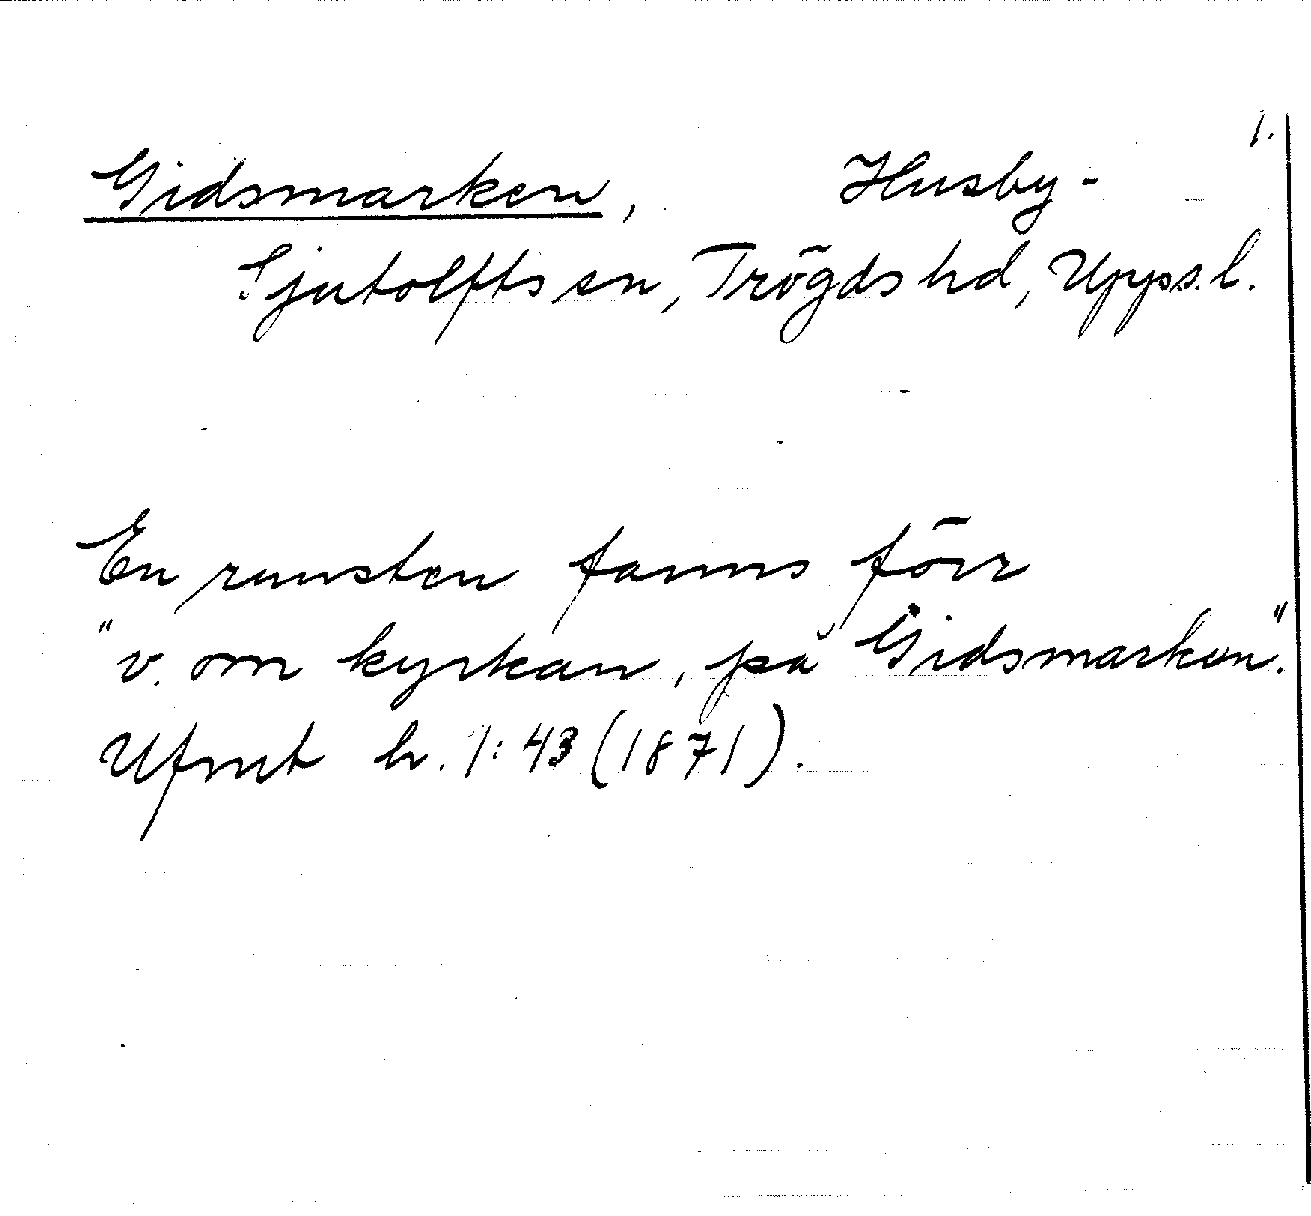 1.
Gidsmarken, Husby-
Sjutolfts sn, Trögds hd, Upps. l.
En runsten fanns förr
"v. om kyrkan, på Gidsmarken".
Ufmt h. 1:43 (1871).